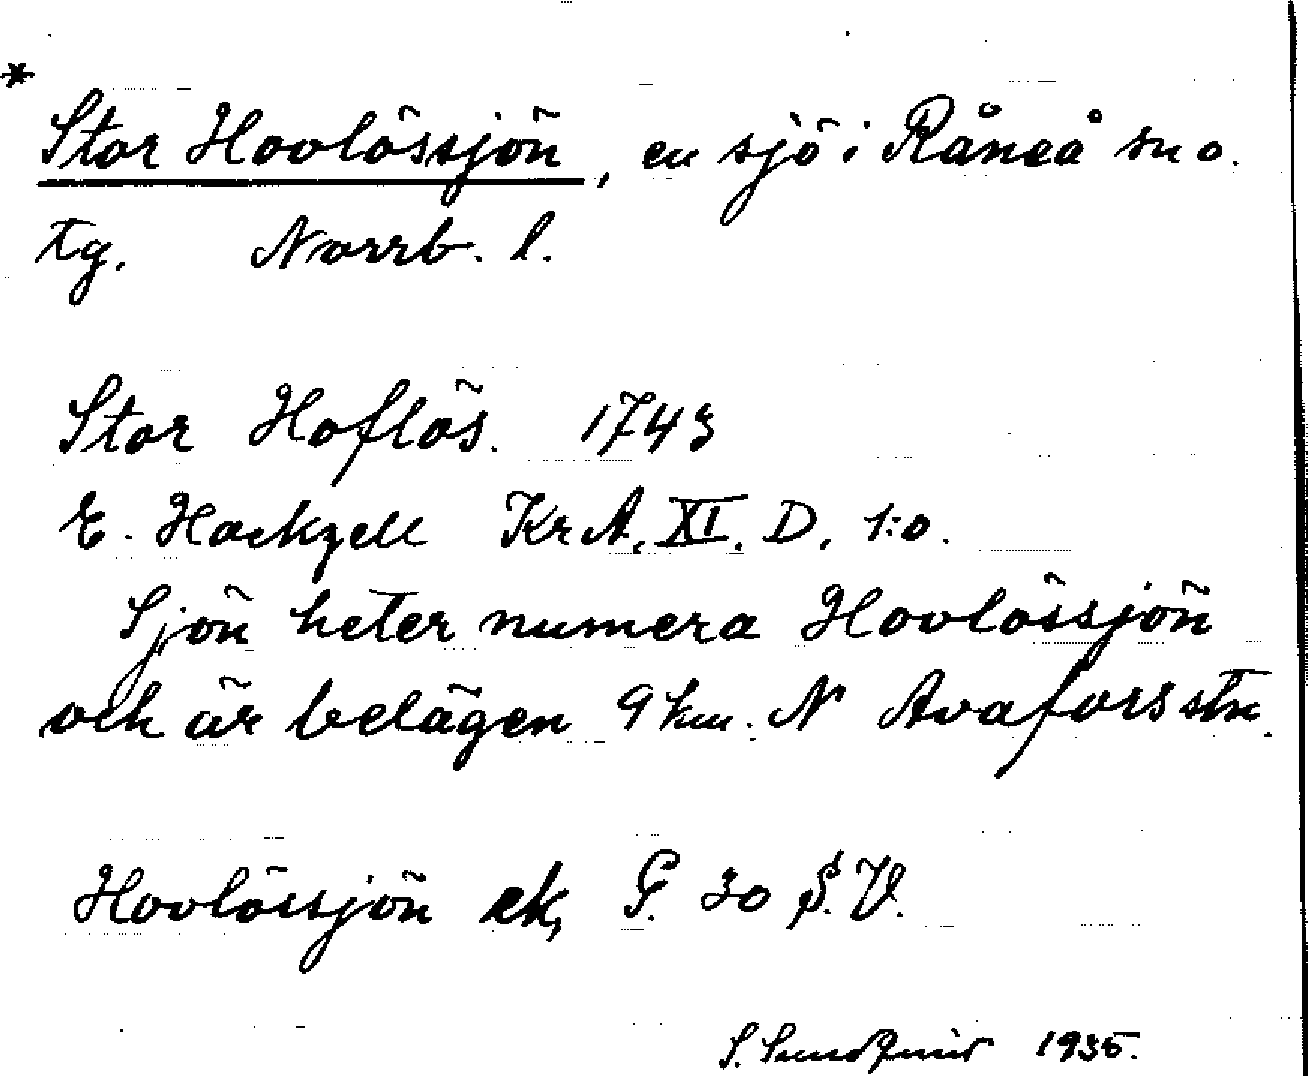 *
Stor Hovlössjön, en sjö i Råneå sn o.
tg. Norrb. l.
Stor Hoflös. 1743
E. Hackzell KrA. XI. D. 1:o.
Sjön heter numera Hovlössjön
och är belägen 9 km. N Avaforsstn.
Hovlössjön ek, G. 30 S.V.
S. Lundqvist 1935.